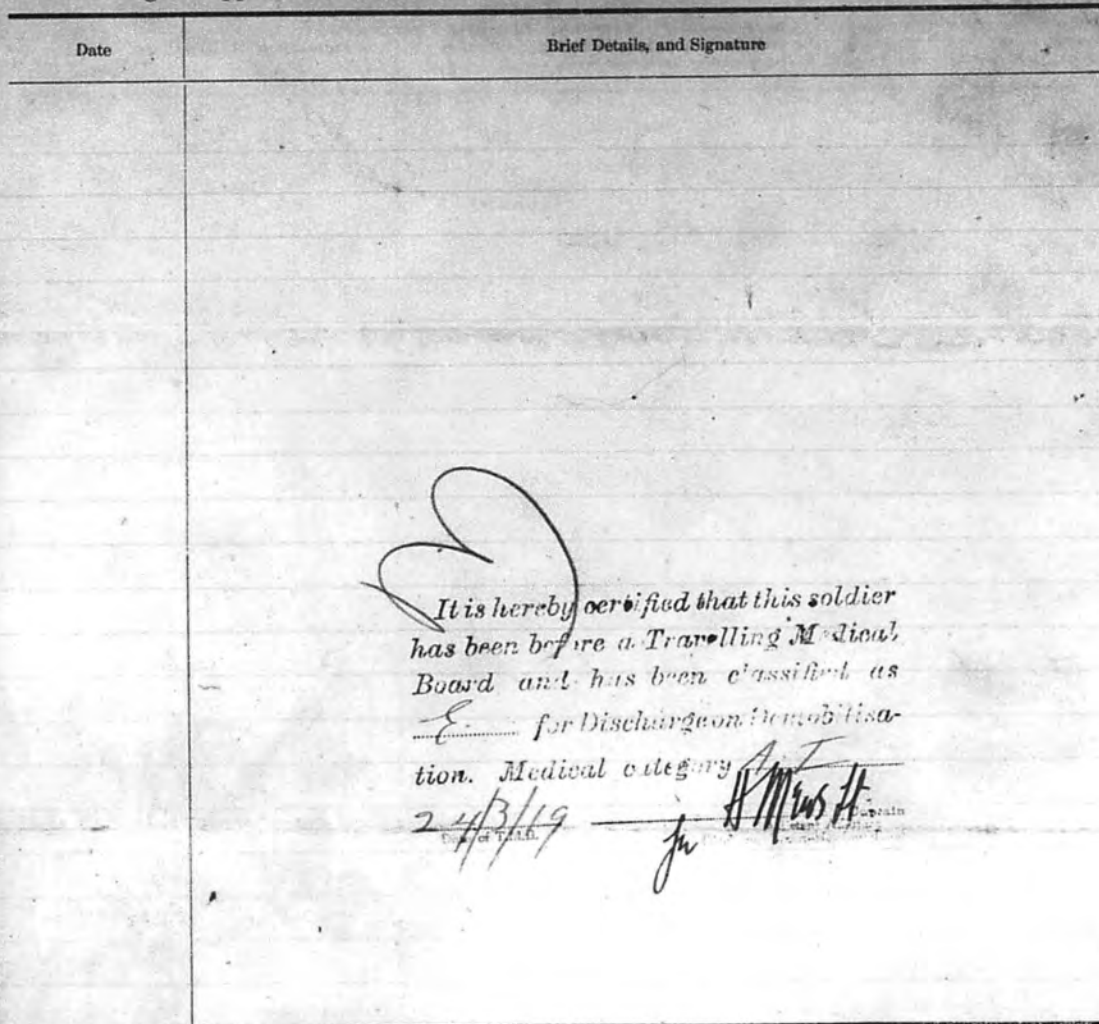 Date
Brief Details, and Signature
It is hereby certified that this soldier
has been before a Travelling Medical
Board and has been classified as
E. for Discharge on Demobilisa-
tion. Medical category A I
24/3/19
for H Mews Lt
Captain